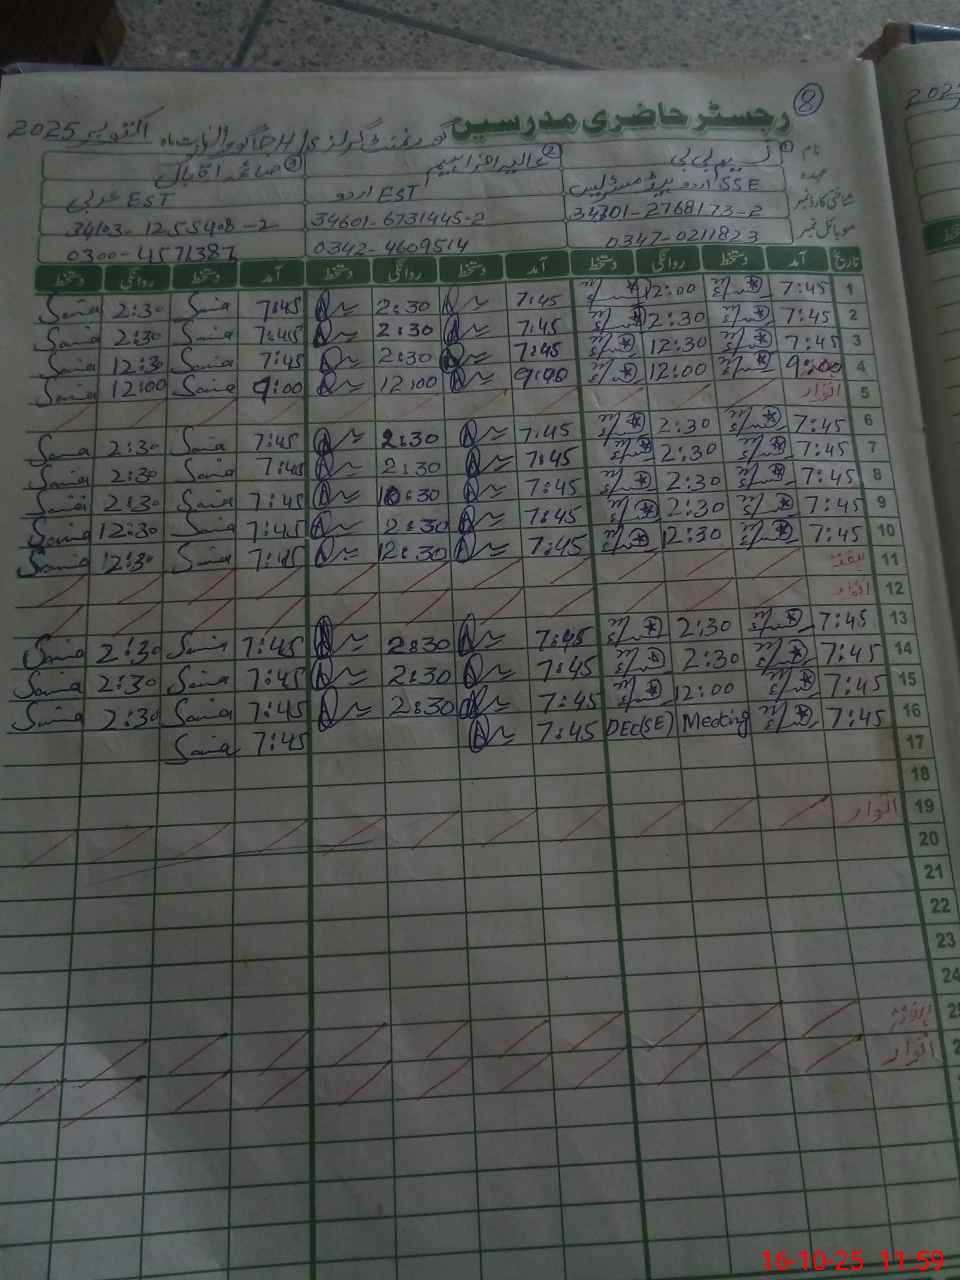 8
رجسٹر حاضری مدرسین
گورنمنٹ گرلز ماہ اکتوبر 2025
نام ① بی بی ② عالیہ ابراہیم ③ صائمہ اقبال
عہدہ SSE اردو ہیڈمسٹریس EST اردو EST عربی
شناختی کارڈ نمبر 34601-6731445-2
موبائل نمبر 0347-0211823 0342-4609514 0300-4571387
تاریخ آمد دستخط روانگی دستخط آمد دستخط روانگی دستخط آمد دستخط روانگی دستخط
1 7:45 12:00 7:45 2:30 7:45 Saima 2:30 Saima
2 7:45 2:30 7:45 2:30 7:45 Saima 2:30 Saima
3 7:45 12:30 7:45 7:45 Saima 12:30 Saima
4 9:00 12:00 9:00 12:00 9:00 Saima 12:00 Saima
5 اتوار
6 7:45 2:30 7:45 2:30 7:45 Saima 2:30 Saima
7 7:45 2:30 7:45 2:30 7:45 Saima 2:30 Saima
8 7:45 2:30 7:45 10:30 7:45 Saima 2:30 Saima
9 7:45 2:30 7:45 2:30 7:45 Saima 12:30 Saima
10 7:45 12:30 7:45 12:30 7:45 Saima 12:30 Saima
11 ہفتہ
12 اتوار
13 7:45 2:30 7:45 2:30 7:45 Saima 2:30 Saima
14 7:45 2:30 7:45 2:30 7:45 Saima 2:30 Saima
15 7:45 12:00 7:45 2:30 7:45 Saima 2:30 Saima
16 7:45 Meeting DEO(SE) 7:45 7:45 Saima
17
18
19 اتوار
20
21
22
23
24
اتوار
16-10-25 11:59